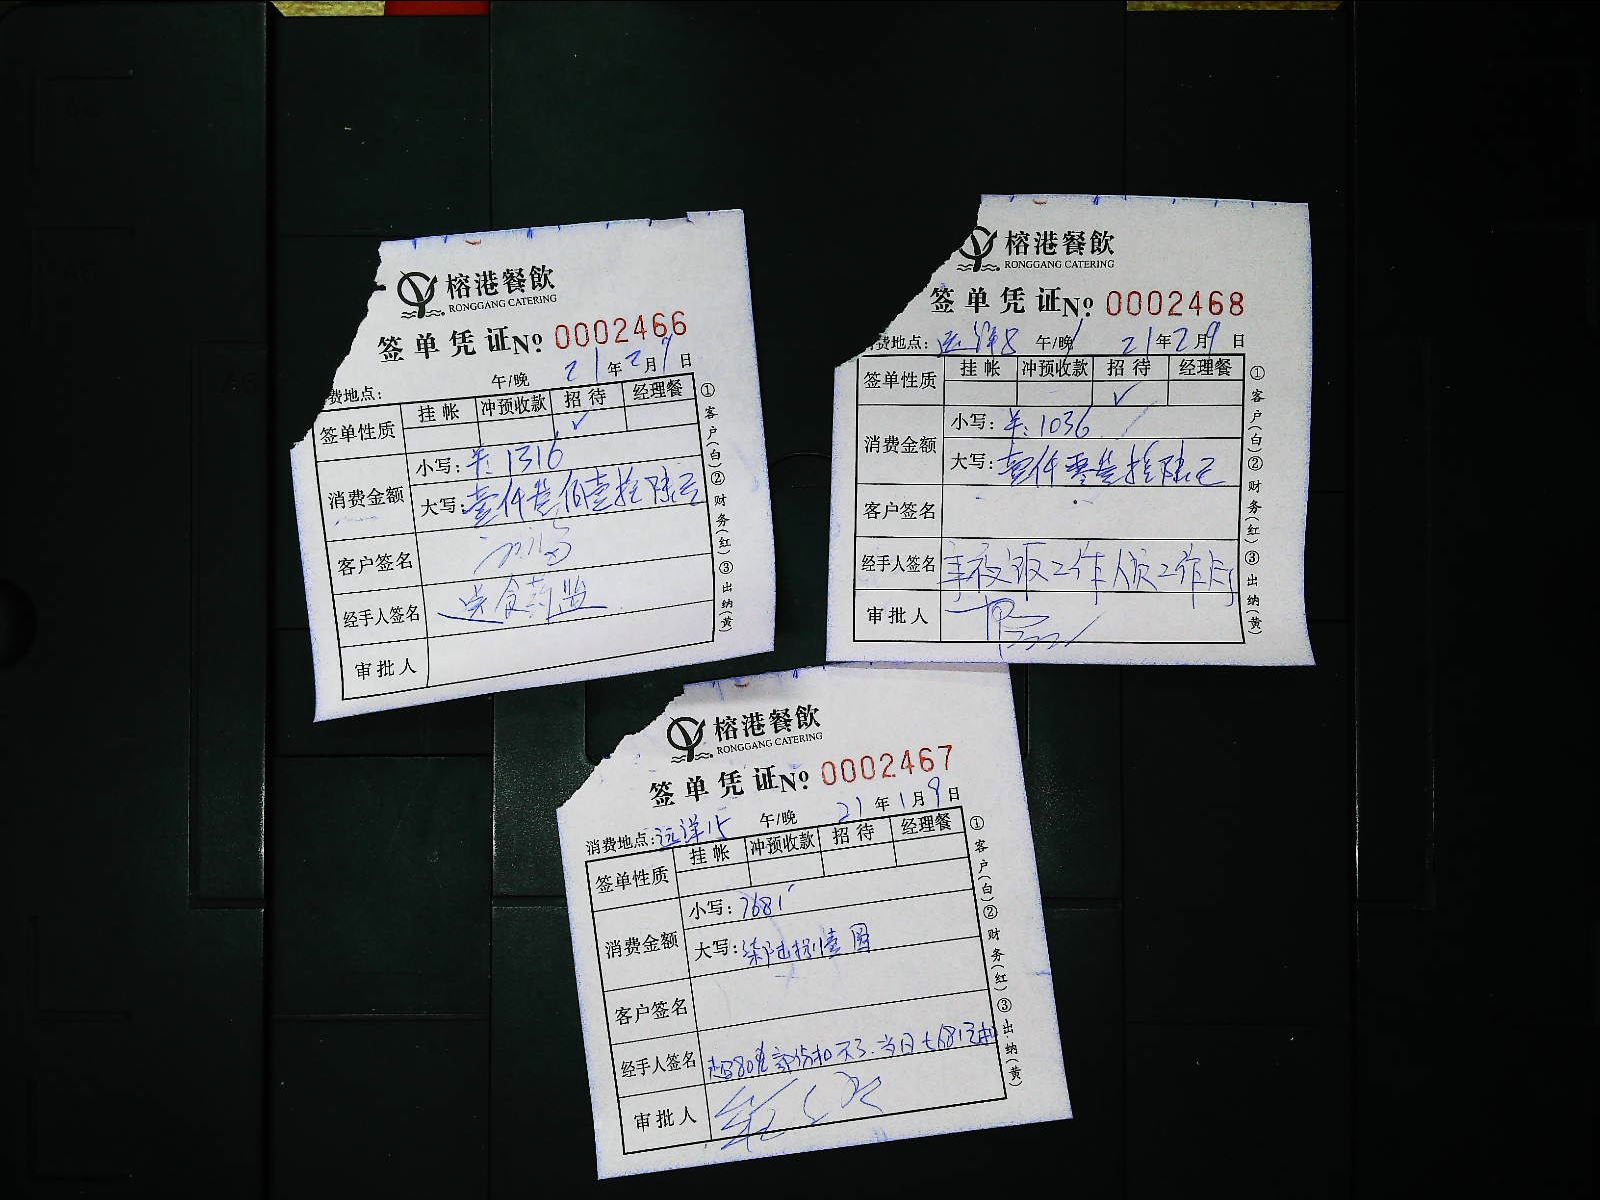 榕港餐飲
RONGGANG CATERING
签单凭证 No 0002466
费地点: 午/晚 21年2月9日
签单性质 挂帐 冲预收款 招待 经理餐
✓
消费金额 小写: 羊: 1316
大写: 壹仟叁佰壹拾陆元
客户签名
经手人签名 送食药监
审批人
①客户(白)②财务(红)③出纳(黄)
榕港餐飲
RONGGANG CATERING
签单凭证 No 0002468
费地点: 远洋8 午/晚 21年2月9日
签单性质 挂帐 冲预收款 招待 经理餐
✓
消费金额 小写: 羊: 1036
大写: 壹仟零叁拾陆元
客户签名
经手人签名 年夜饭工作人员工作
审批人
①客户(白)②财务(红)③出纳(黄)
榕港餐飲
RONGGANG CATERING
签单凭证 No 0002467
消费地点: 远洋15 午/晚 21年1月9日
签单性质 挂帐 冲预收款 招待 经理餐
消费金额 小写: 7681
大写: 柒陆捌壹圆
客户签名
经手人签名 扣不了.当日7681
审批人
①客户(白)②财务(红)③出纳(黄)